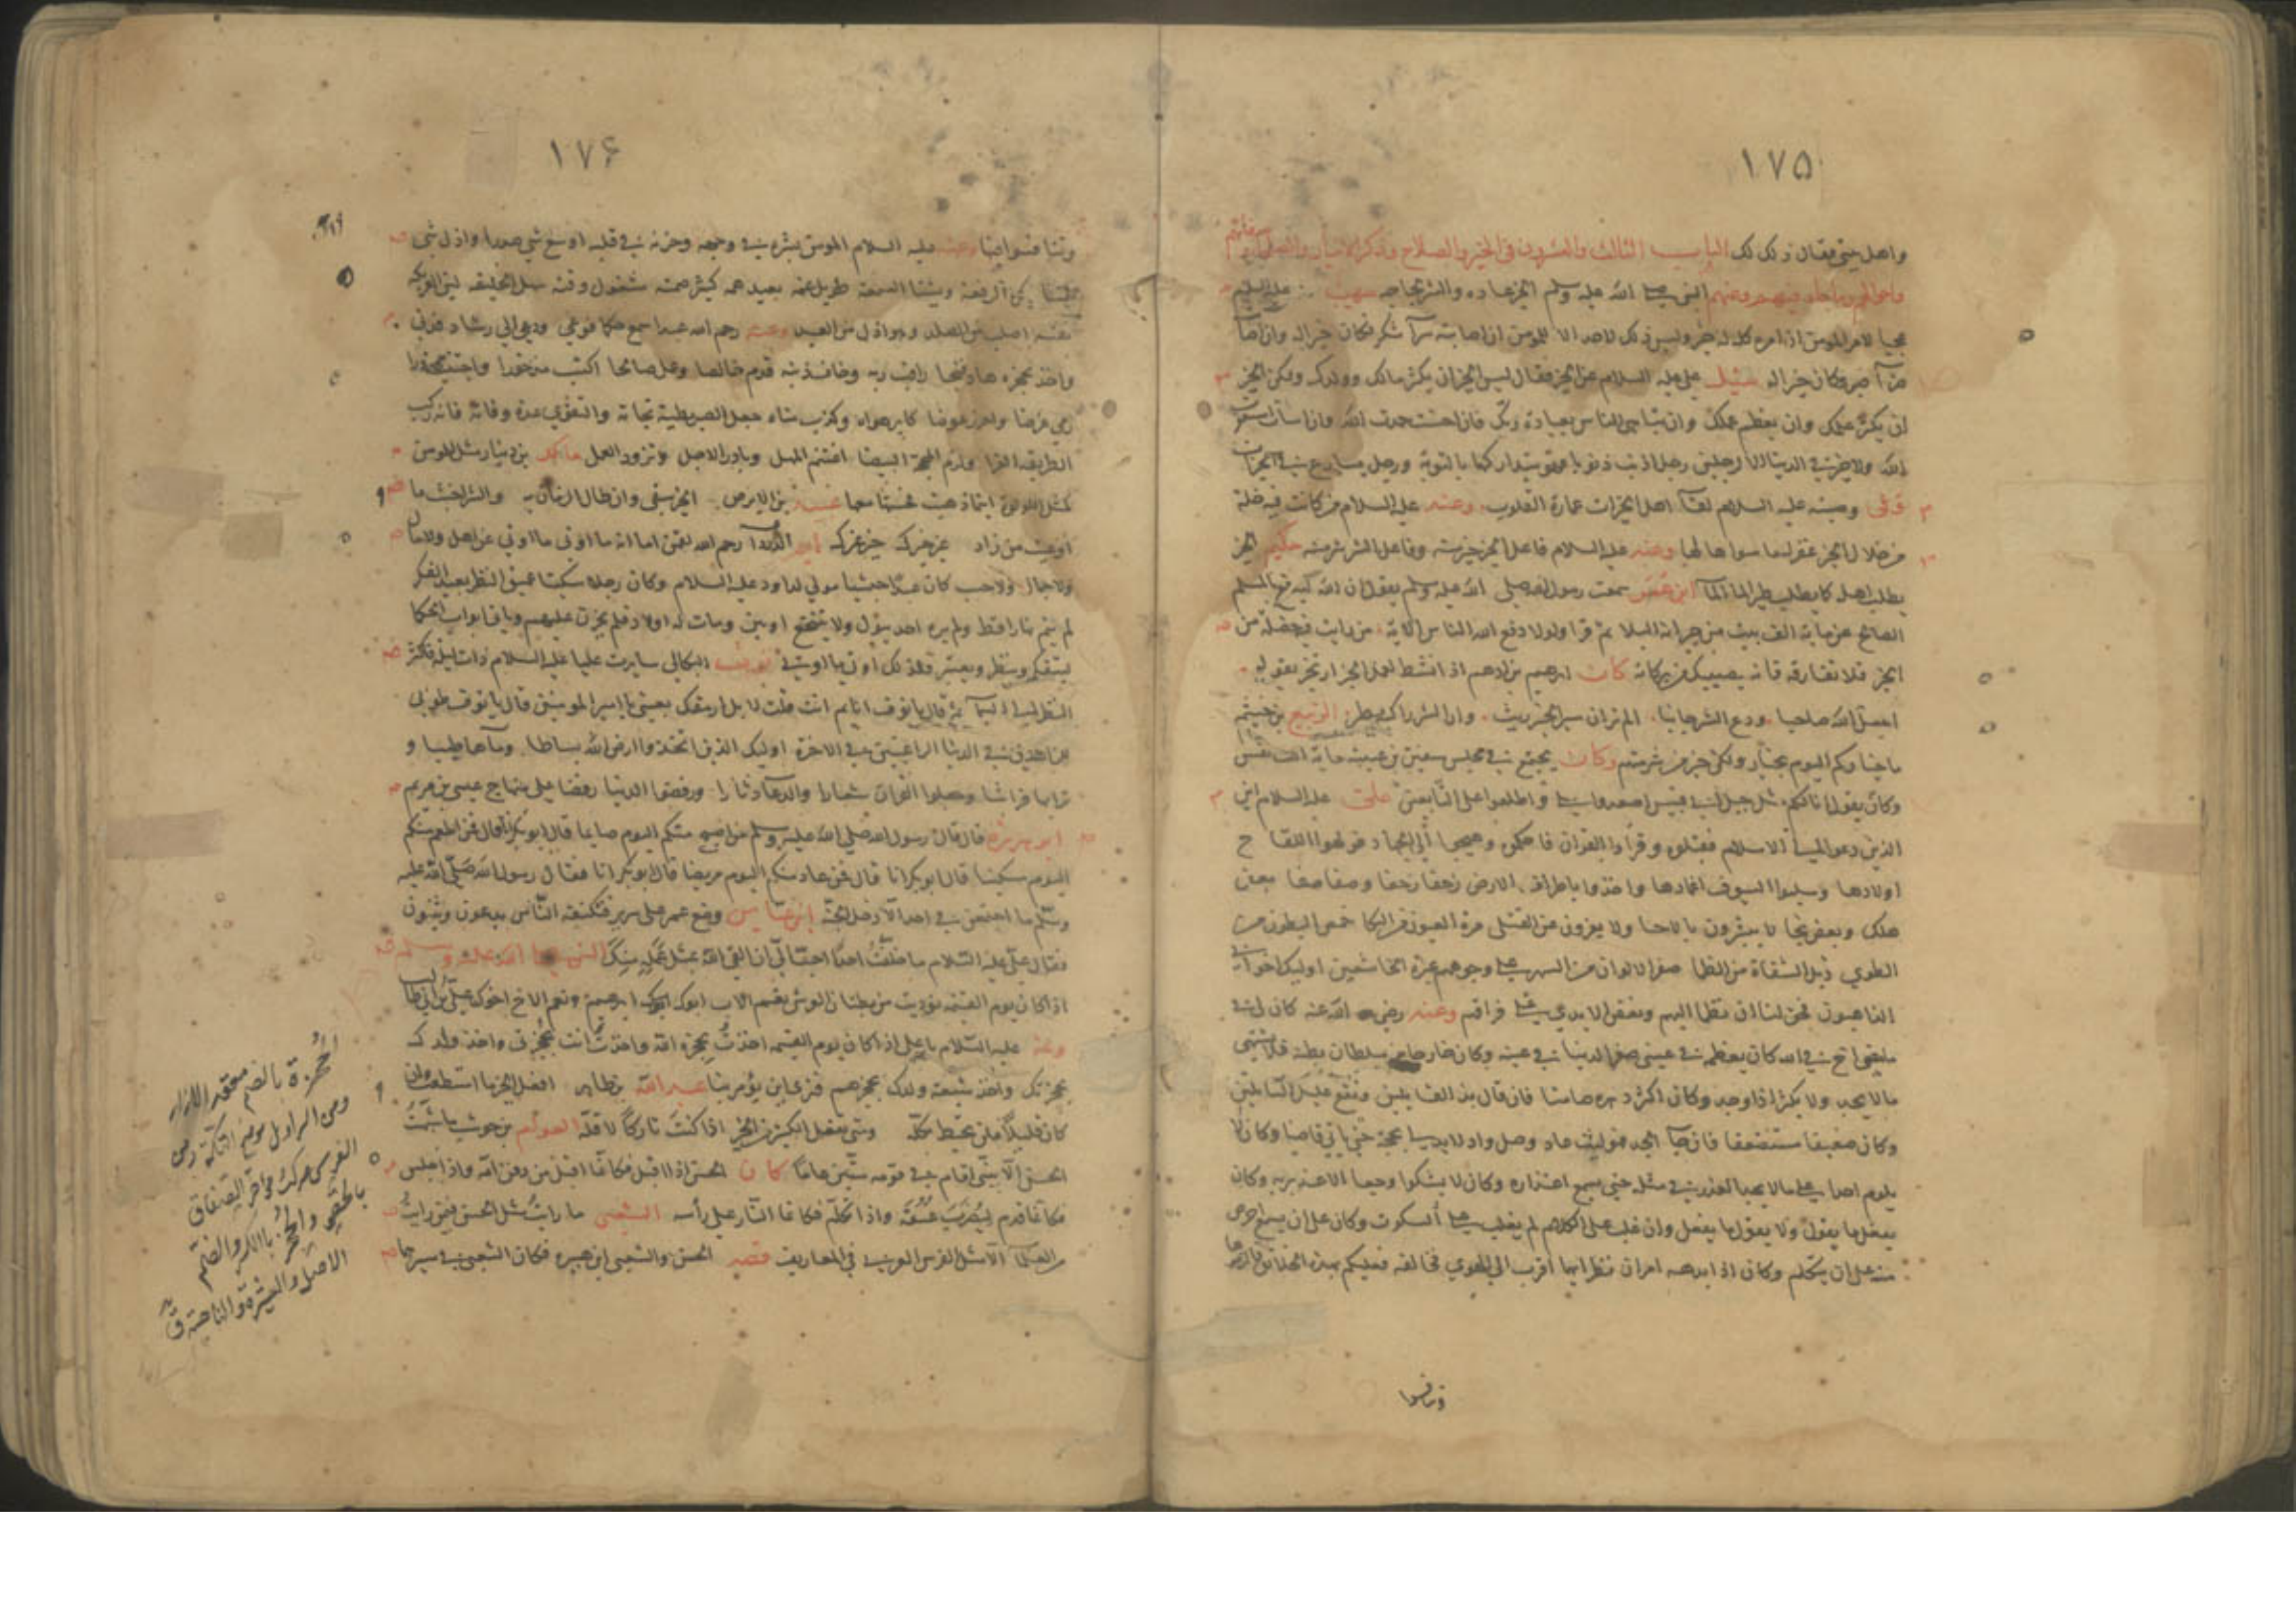 ١٧٥
واهل بيتي فقال ذلك لك الباب الثالث والعشرون في الخير والصلاح وذكر الاخيار والصلحاء وصفاتهم
واحوالهم وما جاء فيهم وعنهم النبي صلى الله عليه وسلم الخير عادة والشر لجاجة صهيب عليه السلام
عجبا لامر المومن اذ امره كله له خير وليس ذلك لاحد الا للمومن ان اصابته سرآ شكر فكان خيرا له وان اصابته
ضرآ صبر فكان خيرا له سئل علي عليه السلام عن الخير فقال ليس الخير ان يكثر مالك وولدك ولكن الخير
ان يكثر علمك وان يعظم حلمك وان تباهي الناس بعبادة ربك فان احسنت حمدت الله وان اسأت استغفرت
الله ولا خير في الدنيا الا لرجلين رجل اذنب ذنوبا فهو يتداركها بالتوبة ورجل يسارع في الخيرات
وعنه عليه السلام لقآ اهل الخيرات عمارة القلوب وعنه عليه السلام من كانت فيه خلة
من خلال الخير غفر له ما سواها لها وعنه عليه السلام فاعل الخير خير منه وفاعل الشر شر منه حكيم الخير
يطلب اهله كما يطلب طير المآ المآ ابن عمر سمعت رسول الله صلى الله عليه وسلم يقول ان الله ليدفع بالمسلم
الصالح عن ماية الف بيت من جيرانه البلا ثم قرا ولولا دفع الله الناس الاية من رايت فيه خصلة من
الخير فلا تفارقه فانه يصيبك من بركاته كان ابرهيم بن ادهم اذا نشط لعمل الخير ارتجز بقوله
اتخذ الله صاحبا ودع الناس جانبا الم تر ان سير الخير ريث وان الشر راكبه يطير الربيع بن خيثم
ما خياركم اليوم بخيار ولكن خير من شر منهم وكان يجتمع في مجلس سفين بن عيينه ماية الف نفس
علي عليه السلام اين
الذين دعوا الى الاسلام فقبلوه وقراوا القران فاحكموه وهيجوا الى الجهاد فولهوا اللقاح
اولادها وسلبوا السيوف اغمادها واخذوا باطراف الارض زحفا زحفا وصفا صفا بعض
هلك وبعض نجا لا يبشرون بالاحيا ولا يعزون عن القتلى مره العيون من البكا خمص البطون من
الطوى ذبل الشفاه من الظما صفر الالوان من السهر على وجوههم غبرة الخاشعين اوليك اخواني
الذاهبون فحق لنا ان نظما اليهم ونعض الايدي على فراقهم وعنه رضي الله عنه كان لي في
ما مضى اخ في الله كان يعظمه في عيني صغر الدنيا في عينه وكان خارجا من سلطان بطنه فلا يشتهي
ما لا يجد ولا يكثر اذا وجد وكان اكثر دهره صامتا فان قال بذ القايلين ونقع غليل السايلين
وكان ضعيفا مستضعفا فان جآ الجد فهو ليث عاد وصل واد لا يدلي بحجة حتى ياتي قاضيا وكان لا
يلوم احدا على ما لا يجد العذر في مثله حتى يسمع اعتذاره وكان لا يشكوا وجعا الا عند بريه وكان
يفعل ما يقول ولا يقول ما يفعل وان غلب على الكلام لم يغلب على السكوت وكان على ان يسمع احرص
منه على ان يتكلم وكان اذا بدهه امران نظر ايهما اقرب الى الهوى فخالفه فعليكم بهذه الخلايق فالزموها
وتنافسوا
١٧۶
وتنافسوا فيها وعنه عليه السلام المومن بشره في وجهه وحزنه في قلبه اوسع شي صدرا واذل شي
نفسا يكره الرفعة ويشنا السمعة طويل غمه بعيد همه كثير صمته مشغول وقته سهل الخليقه لين العريكه
نفسه اصلب من الصلد وهو اذل من العبد وعنه رحم الله عبدا سمع حكما فوعى ودعي الى رشاد فدنى
واخذ بحجزة هاد فنجا راقب ربه وخاف ذنبه قدم خالصا وعمل صالحا اكتسب مذخورا واجتنب محذورا
رمى غرضا واحرز عوضا كابر هواه وكذب مناه جعل الصبر مطية نجاته والتقوى عدة وفاته ركب
الطريقة الغرا ولزم المحجة البيضا اغتنم المهل وبادر الاجل وتزود العمل مالك بن دينار مثل المومن
كمثل اللولوة اينما ذهبت فحسنها معها عبيد بن الابرص الخير يبقى وان طال الزمان به والشر اخبث ما
اوعيت من زاد غير خيرك خير غيرك ابو الدردا رحم الله لقمن اما انه ما اوتي ما اوتي عن اهل ولا مال
ولا جمال ولا حسب كان عبدا حبشيا مولى لداود عليه السلام وكان رجلا سكيتا عميق النظر بعيد الفكر
لم ينم نهارا قط ولم يره احد يبول ولا يتنخع ومات له اولاد فلم يحزن عليهم وياتي ابواب الحكما
ليتفكر وينظر ويعتبر فلذلك اوتي ما اوتي نوف البكالي سايرت عليا عليه السلام ذات ليلة فكثر
النظر الى السمآ ثم قال يا نوف انايم انت قلت لا بل ارمقك بعيني يا امير المومنين قال يا نوف طوبى
للزاهدين في الدنيا الراغبين في الاخرة اوليك الذين اتخذوا ارض الله بساطا ومآها طيبا و
ترابها فراشا وجعلوا القران شعارا والدعآ دثارا ورفضوا الدنيا رفضا على منهاج عيسى بن مريم
ابو هريره قال قال رسول الله صلى الله عليه وسلم من اصبح منكم اليوم صايما قال ابو بكر انا قال فمن اطعم منكم
اليوم مسكينا قال ابو بكر انا قال فمن عاد منكم اليوم مريضا قال ابو بكر انا فقال رسول الله صلى الله عليه
وسلم ما اجتمعن في احد الا دخل الجنة ابن عباس وضع عمر على سريره فتكنفه الناس يدعون ويثنون
فقال علي عليه السلام ما خلفت احدا احب الي ان القى الله بمثل عمله منك النبي صلى الله عليه وسلم
اذا كان يوم القيمة نوديت من بطنان العرش نعم الاب ابوك ابرهيم ونعم الاخ اخوك علي بن ابي طالب
وعنه عليه السلام يا علي اذا كان يوم القيمة اخذت بحجزة الله واخذت انت بحجزتي واخذ ولدك
بحجزتك واخذ شيعة ولدك بحجزهم فترى اين يؤمر بنا عبد الله بن طاهر افعل الخير ما استطعت وان
كان قليلا فلن تحيط بكله ومتى تفعل الكثير من الخير اذا كنت تاركا لاقله العوام بن حوشب ما شبهت
الحسن الا بنبي اقام في قومه ستين عاما كان الحسن اذا اقبل فكانما اقبل من دفن امه واذا جلس
فكانما قدم ليضرب عنقه واذا تكلم فكانما النار على رأسه الشعبي ما رايت مثل الحسن فيمن رايت
من العلمآ الا مثل الفرس العربي في المعاريف قصد الحسن والشعبي ابن هبيره فكان الشعبي في سيرهما
الحجزة بالضم معقد الازار
ومن السراويل موضع التكة ومن
الفرس مركب مؤخر الصفاق
بالحقو والحجز بالكسر والضم
الاصل والعشيرة والناحية ق